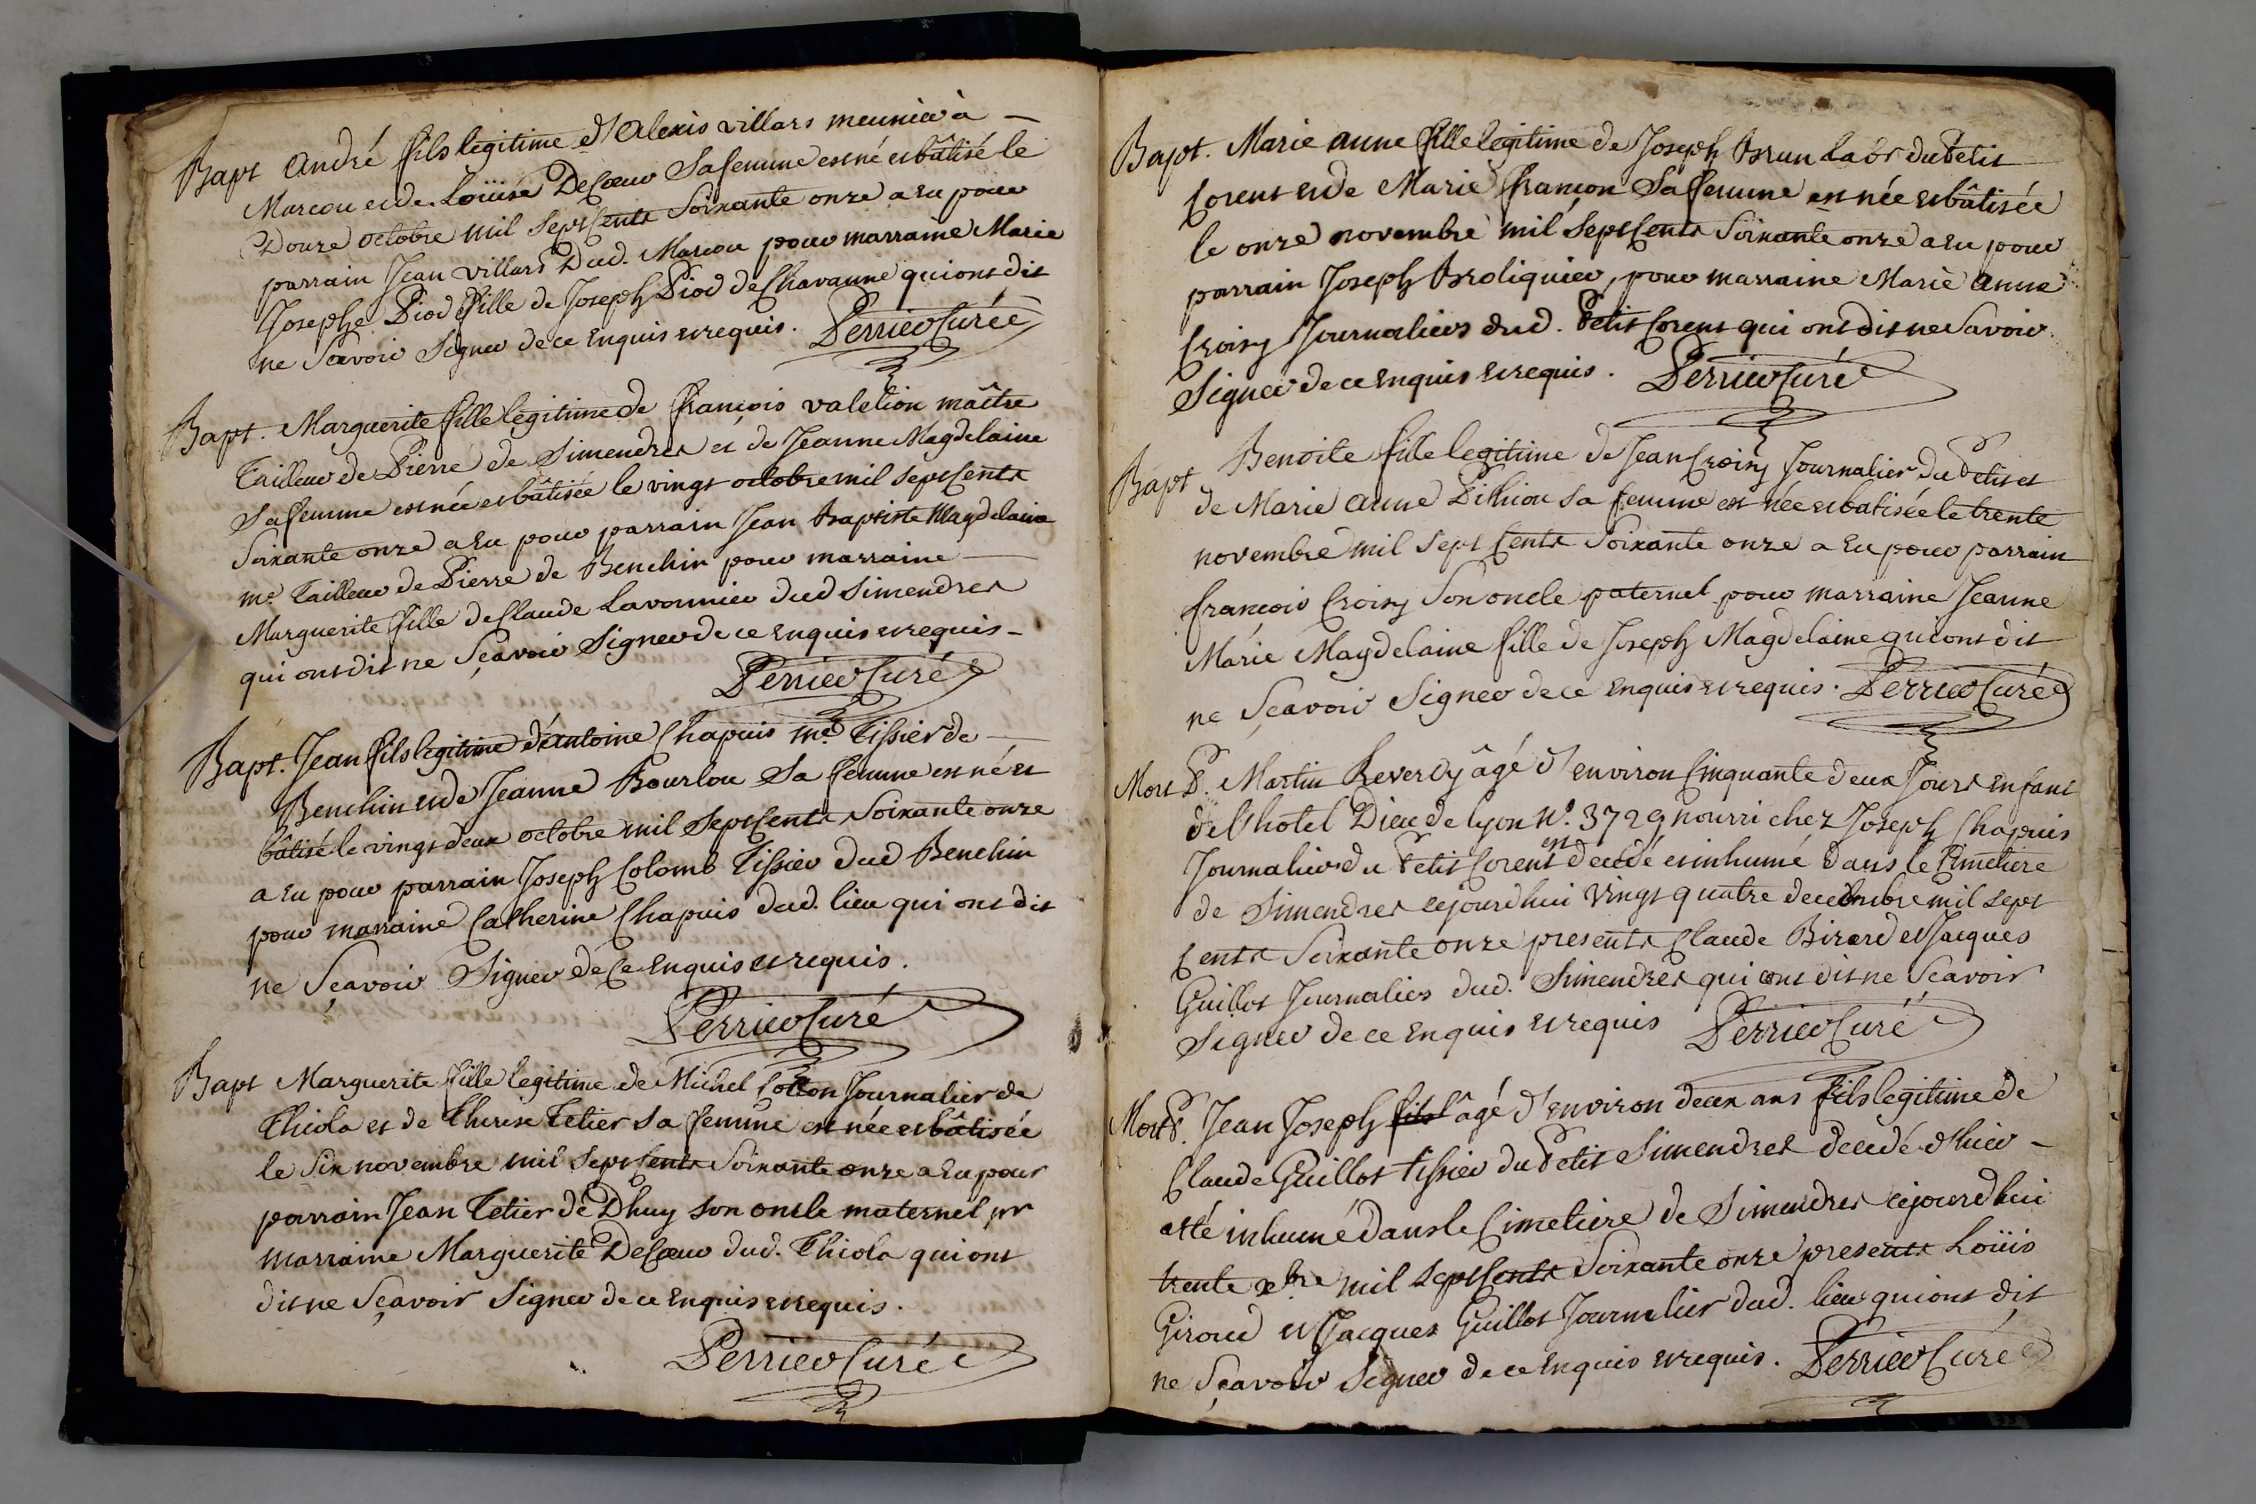 Bapt André fils legitime d'Alexis villars meunier à
Marcou et de Loüise DeCoeur Sa femme est né et bâtisé le
Douze octobre mil sept Cents Soixante onze a Eu pour
parrain Jean villars Dud. Marcou pour marraine Marie
Josephe Piod fille de Joseph Piod de Chavanne qui ont dit
ne Scavoir Signer de ce Enquis et requis. Perrier Curé
Bapt. Marguerite fille legitime de françois valetion maître
Tailleur de Pierre de Simendres et de Jeanne Magdelaine
Sa femme est née et bâtisée le vingt octobre mil sept Cents
Soixante onze a Eu pour parrain Jean Baptiste Magdelaine
me. Tailleur de Pierre de Benchin pour marraine
Marguerite fille de Claude Lavonnier dud Simendres
qui ont dit ne Sçavoir Signer de ce Enquis et requis
Perrier Curé
Bapt. Jean fils legitime d'antoine Chapuis me. Tissier de
Benchin et de Jeanne Bourlou Sa femme est né et
bâtisé le vingt deux octobre mil Sept Cents Soixante onze
a Eu pour parrain Joseph Colomb Tissier dud Benchin
pour marraine Catherine Chapuis dud. lieu qui ont dit
ne Sçavoir Signer de Ce Enquis et requis.
Perrier Curé
Bapt Marguerite fille legitime de Michel Cotton Journalier de
Thiola et de Therese Tetier Sa femme est née et bâtisée
le Six novembre mil Sept Cents Soixante onze a Eu pour
parrain Jean Tetier de Dhuy son oncle maternel pr
marraine Marguerite DeCoeur dud. Thiola qui ont
dit ne Sçavoir Signer de ce Enquis et requis.
Perrier Curé
Bapt. Marie anne fille legitime de Joseph Brun Labr du Petit
Corent et de Marie françon Sa femme est née et bâtisée
le onze novembre mil Sept Cents Soixante onze a Eu pour
parrain Joseph Broliquier, pour marraine Marie Anne
Croisy Journaliers dud. Petit Corent qui ont dit ne Savoir
Signer de ce Enquis et requis. Perrier Curé
Bapt Benoite fille legitime de Jean Croisy Journalier du Petit et
de Marie anne Pithiou sa femme est née et batisée le trente
novembre mil Sept Cents Soixante onze a Eu pour parrain
françois Croisy Son oncle paternel pour marraine Jeanne
Marie Magdelaine fille de Joseph Magdelaine qui ont dit
ne Sçavoir Signer de ce Enquis et requis. Perrier Curé
Mort P. Martin Reverdy âgé d'environ Cinquante deux Jours enfant
de l'hotel Dieu de lyon No. 3729 nourri chez Joseph Chapuis
Journalier du Petit Corent est decedé et inhumé dans le Cimetiere
de Simendres cejourdhui vingt quatre decembre mil sept
Cents Soixante onze presents Claude Birard et Jacques
Guillot Journaliers dud. Simendres qui ont dit ne Scavoir
Signer de ce enquis et requis Perrier Curé
Mort P. Jean Joseph fils âgé d'environ deux ans fils legitime de
Claude Guillot tissier du Petit Simendres decedé d'hier
a été inhumé dans le Cimetiere de Simendres cejourdhui
trente xbre mil Sept Cents Soixante onze presents Loüis
Giroud et Jacques Guillot Journalier dud. lieu qui ont dit
ne Sçavoir Signer de ce Enquis et requis. Perrier Curé